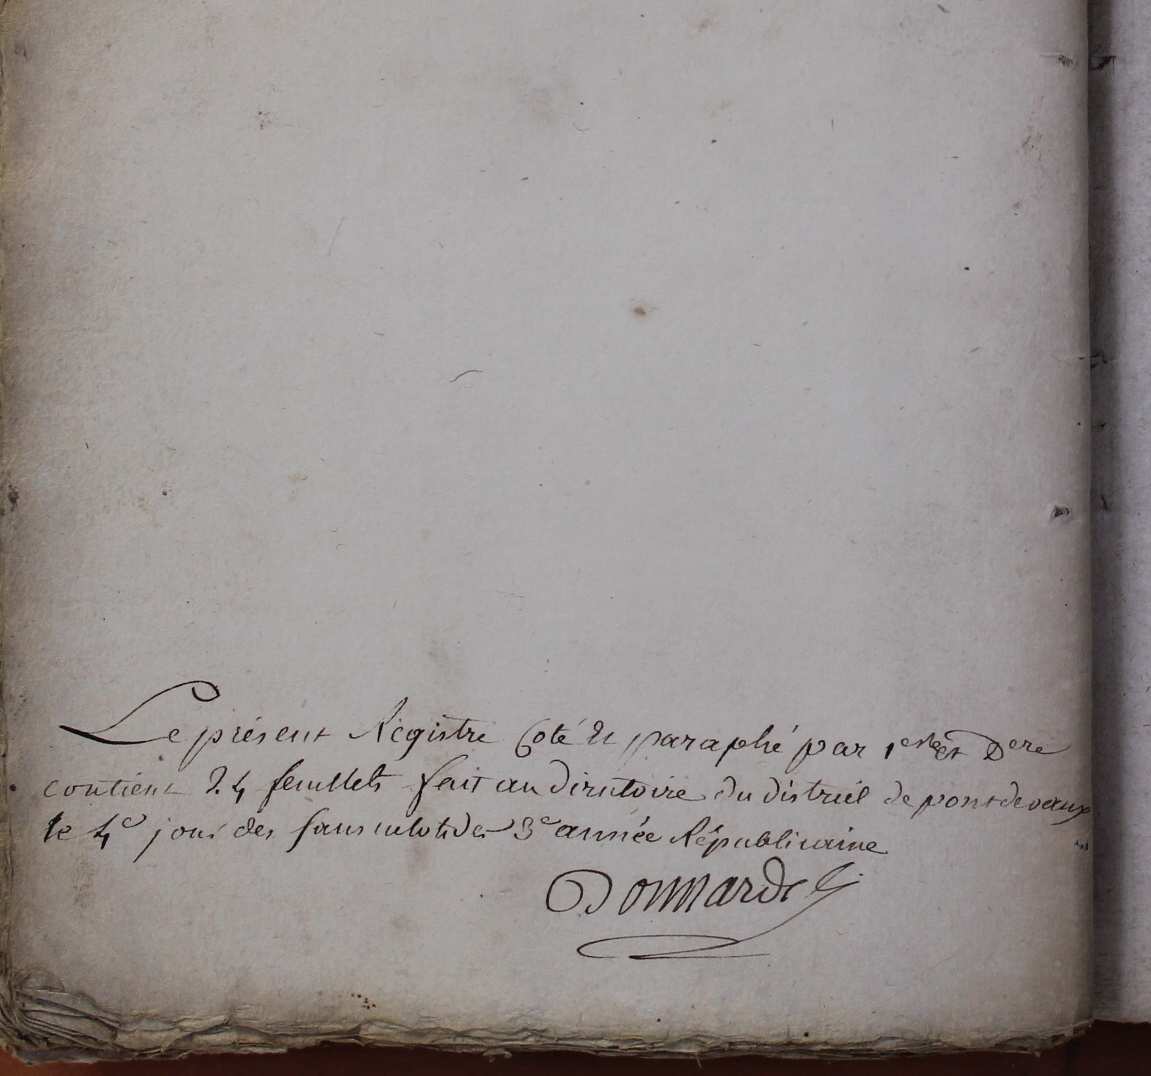 Le présent Registre Coté et paraphé par 1ere et Dere
contient 24 feuillets fait au directoire du district de pontdevaux
le 4e jour des sansculotides 3e année Républicaine